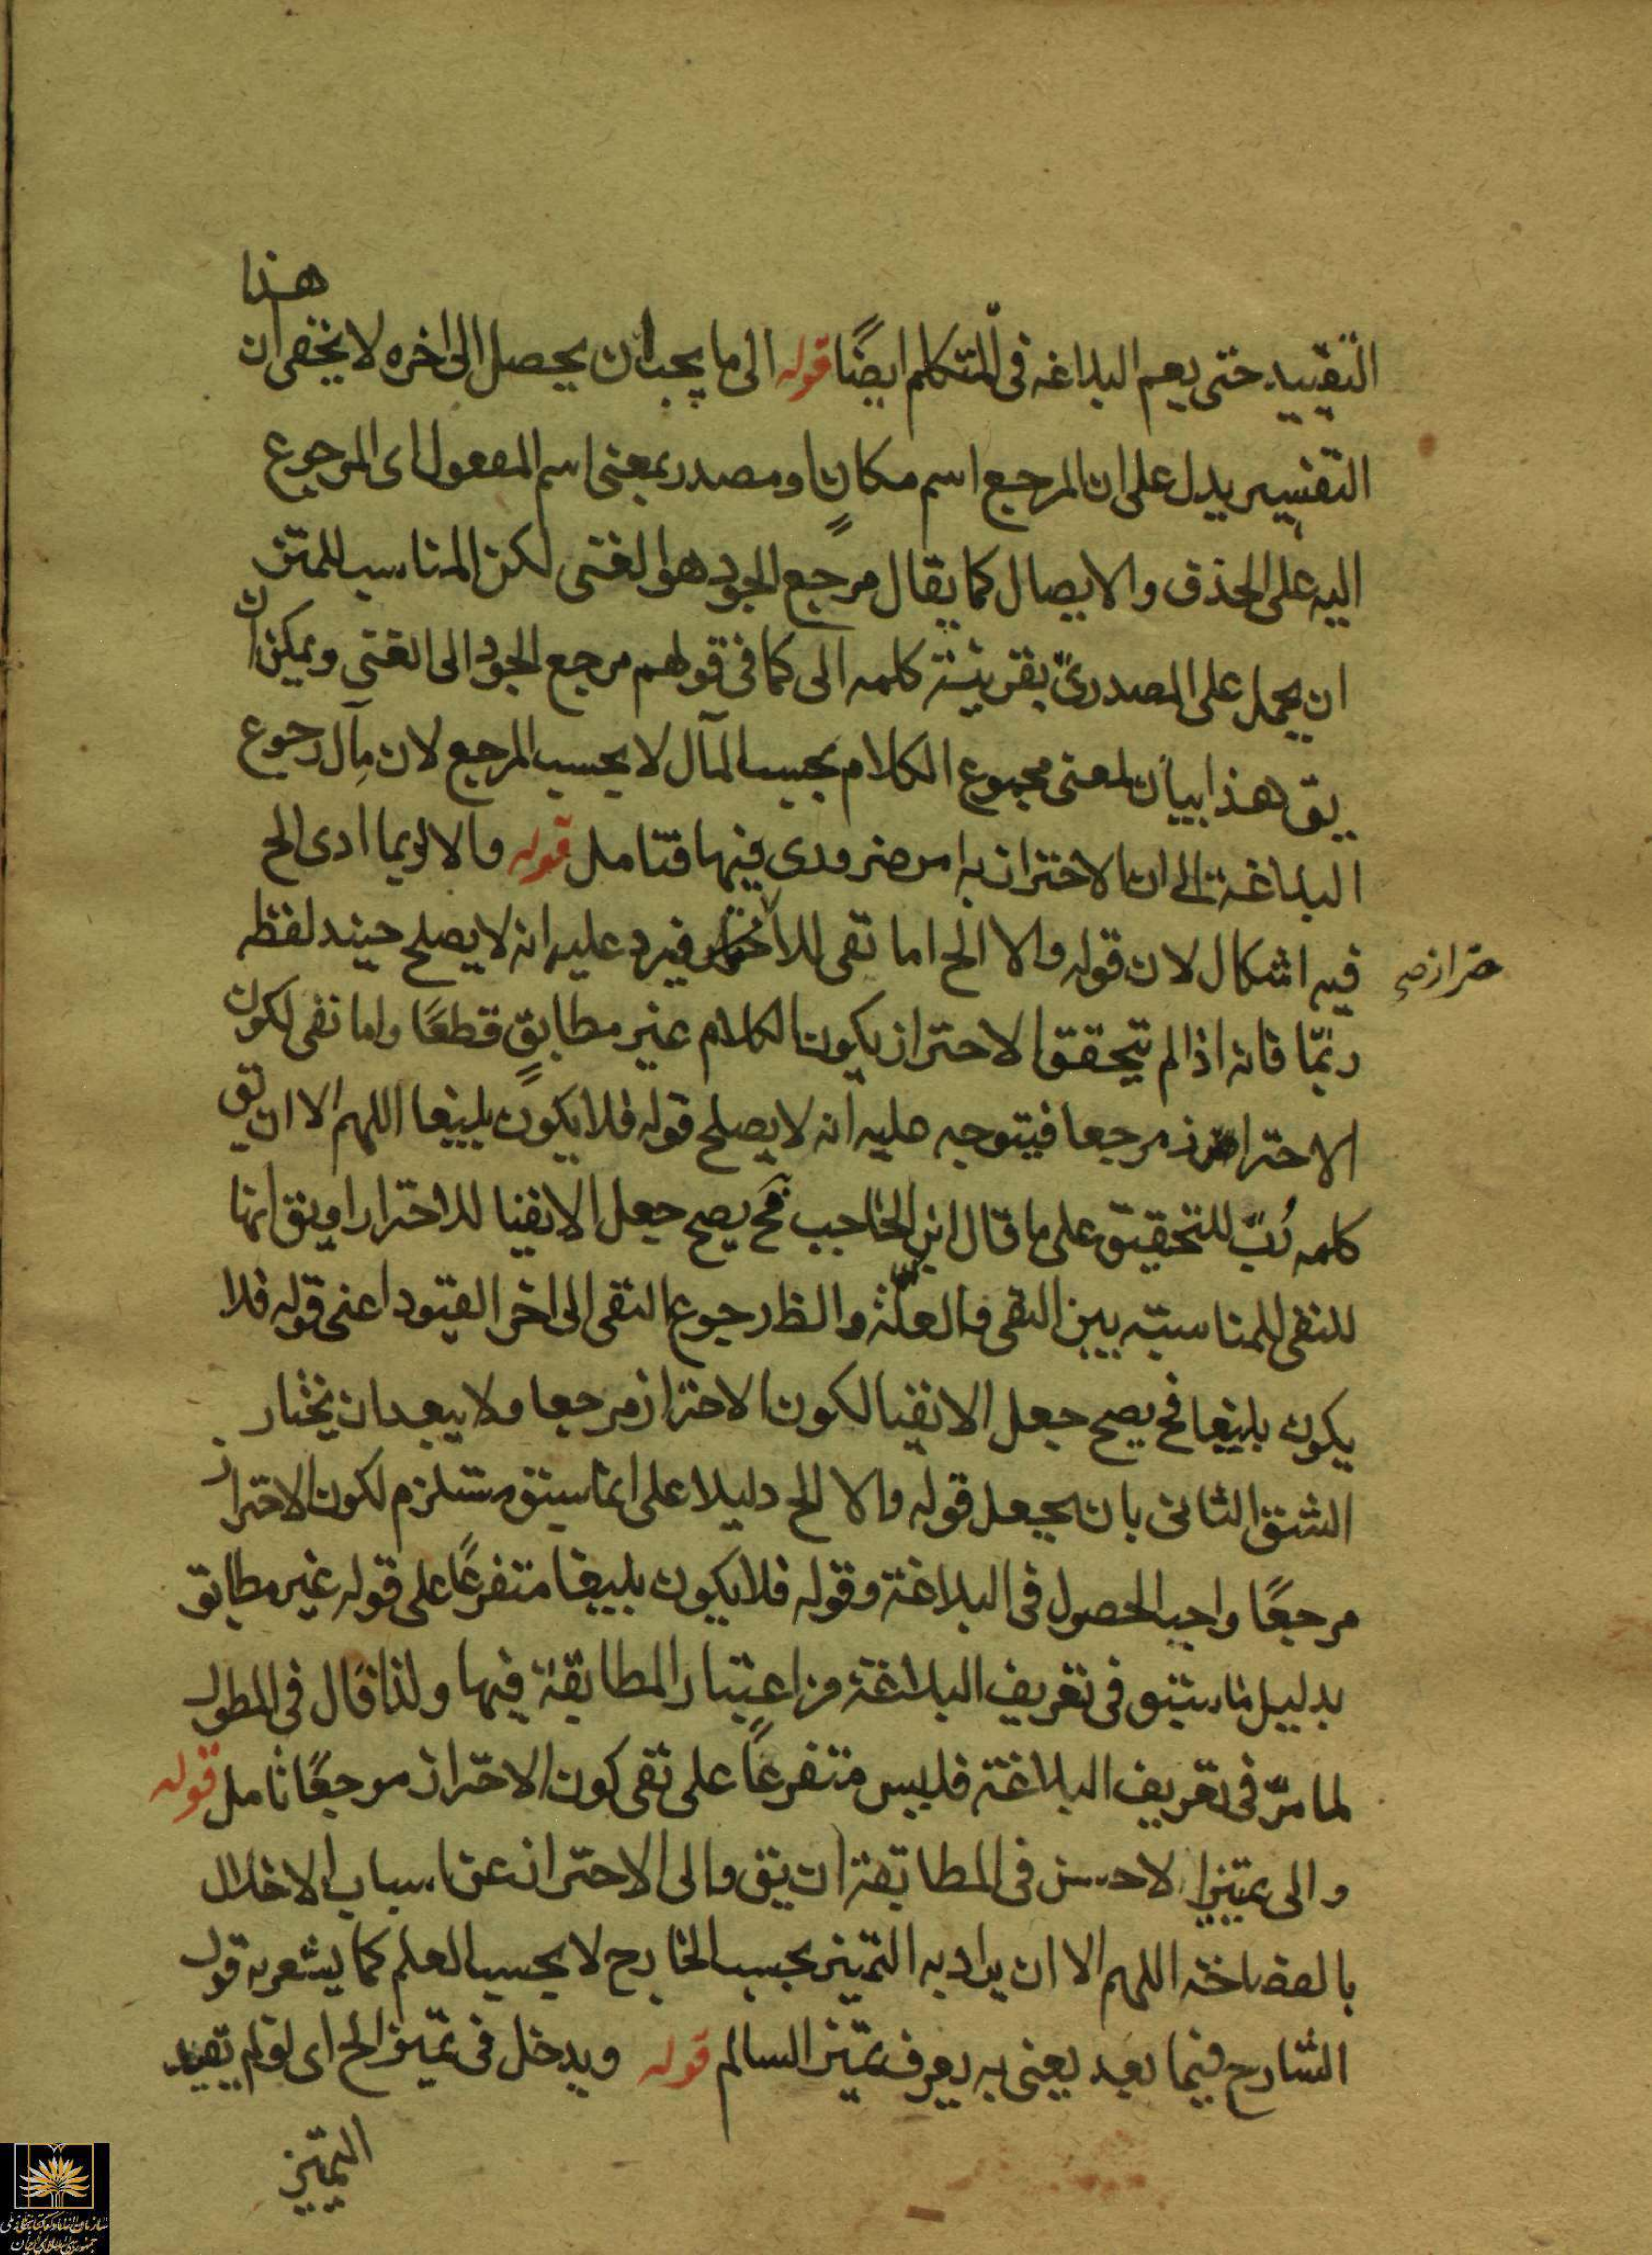 هذا
التقييد حتى يعم البلاغه فى المتكلم ايضًا قوله الى ما يجب ان يحصل الى اخره لا يخفى ان
التفسير يدل على ان المرجع اسم مكانٍ او مصدر بمعنى اسم المفعول اى المرجوع
اليه على الحذف والايصال كما يقال مرجع الجود هو الغنى لكن المناسب للمتن
ان يحمل على المصدرىّ بقرينة كلمه الى كما فى قولهم مرجع الجود الى الغنى ويمكن ان
يق هذا بيان لمعنى مجموع الكلام بحسب المآل لا بحسب المرجع لان مآل رجوع
البلاغة الى ان الاحتراز به امر ضرورى فيها فتامل قوله والا لربما ادى الخ
فيه اشكال لان قوله والا الخ اما نفى للاحتراز فيرد عليه انه لا يصلح حينئد لفظه
حتراز صح
ربّما فانه اذا لم يتحقق الاحتراز يكون الكلام غير مطابقٍ قطعًا واما نفى لكون
الاحتراز مرجعا فيتوجه عليه انه لا يصلح قوله فلا يكون بليغا اللهم الا ان يق
كلمه رُبّ للتحقيق على ما قال ابن الحاجب فح يصح جعل الا نفيا للاحتراز او يق انها
للنفى للمناسبة بين النفى والعلّة والظ رجوع النفى الى اخر القيود اعنى قوله فلا
يكون بليغا فح يصح جعل الا نفيا لكون الاحتراز مرجعا ولا يبعد ان يختار
الشق الثانى بان يجعل قوله والا الخ دليلا على ما سبق مستلزم لكون الاحتراز
مرجعًا واجب الحصول فى البلاغة وقوله فلا يكون بليغا متفرعًا على قوله غير مطابق
بدليل ما سبق فى تعريف البلاغة من اعتبار المطابقة فيها ولذا قال فى المطول
لما مرّ فى تعريف البلاغة فليس متفرعًا على نفى كون الاحتراز مرجعًا تامل قوله
والى تمييز الاحسن فى المطابقة ان يق والى الاحتراز عن اسباب الاخلال
بالفصاحة اللهم الا ان يراد به التمييز بحسب الخارج لا بحسب العلم كما يشعر به قول
الشارح فيما بعد يعنى به يعرف تميّز السالم قوله ويدخل فى تمييز الخ اى لو لم يقيد
التمييز